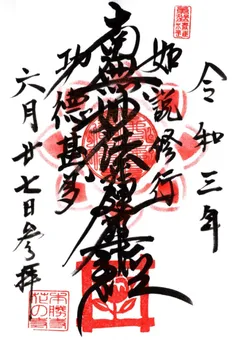 令和三年
如説修行
南無妙法蓮華経
功徳甚多
六月廿七日参拝
本勝寺
花の寺